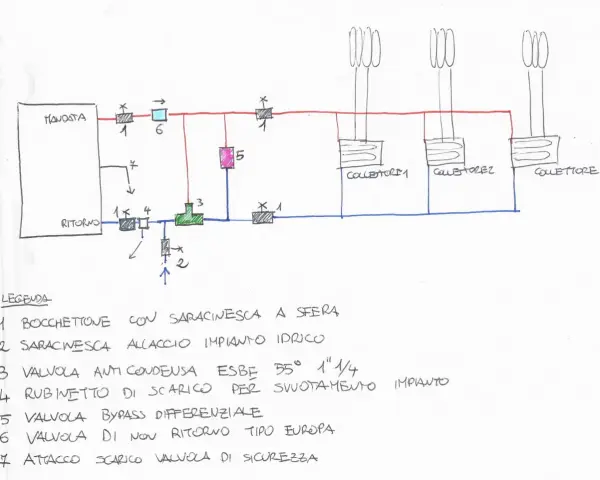 MANDATA
1
6
1
7
5
3
RITORNO
1
4
1
2
COLLETTORE1
COLLETTORE2
COLLETTORE
LEGENDA
1 BOCCHETTONE CON SARACINESCA A SFERA
2 SARACINESCA ALLACCIO IMPIANTO IDRICO
3 VALVOLA ANTICONDENSA ESBE 55° 1"1/4
4 RUBINETTO DI SCARICO PER SVUOTAMENTO IMPIANTO
5 VALVOLA BYPASS DIFFERENZIALE
6 VALVOLA DI NON RITORNO TIPO EUROPA
7 ATTACCO SCARICO VALVOLA DI SICUREZZA